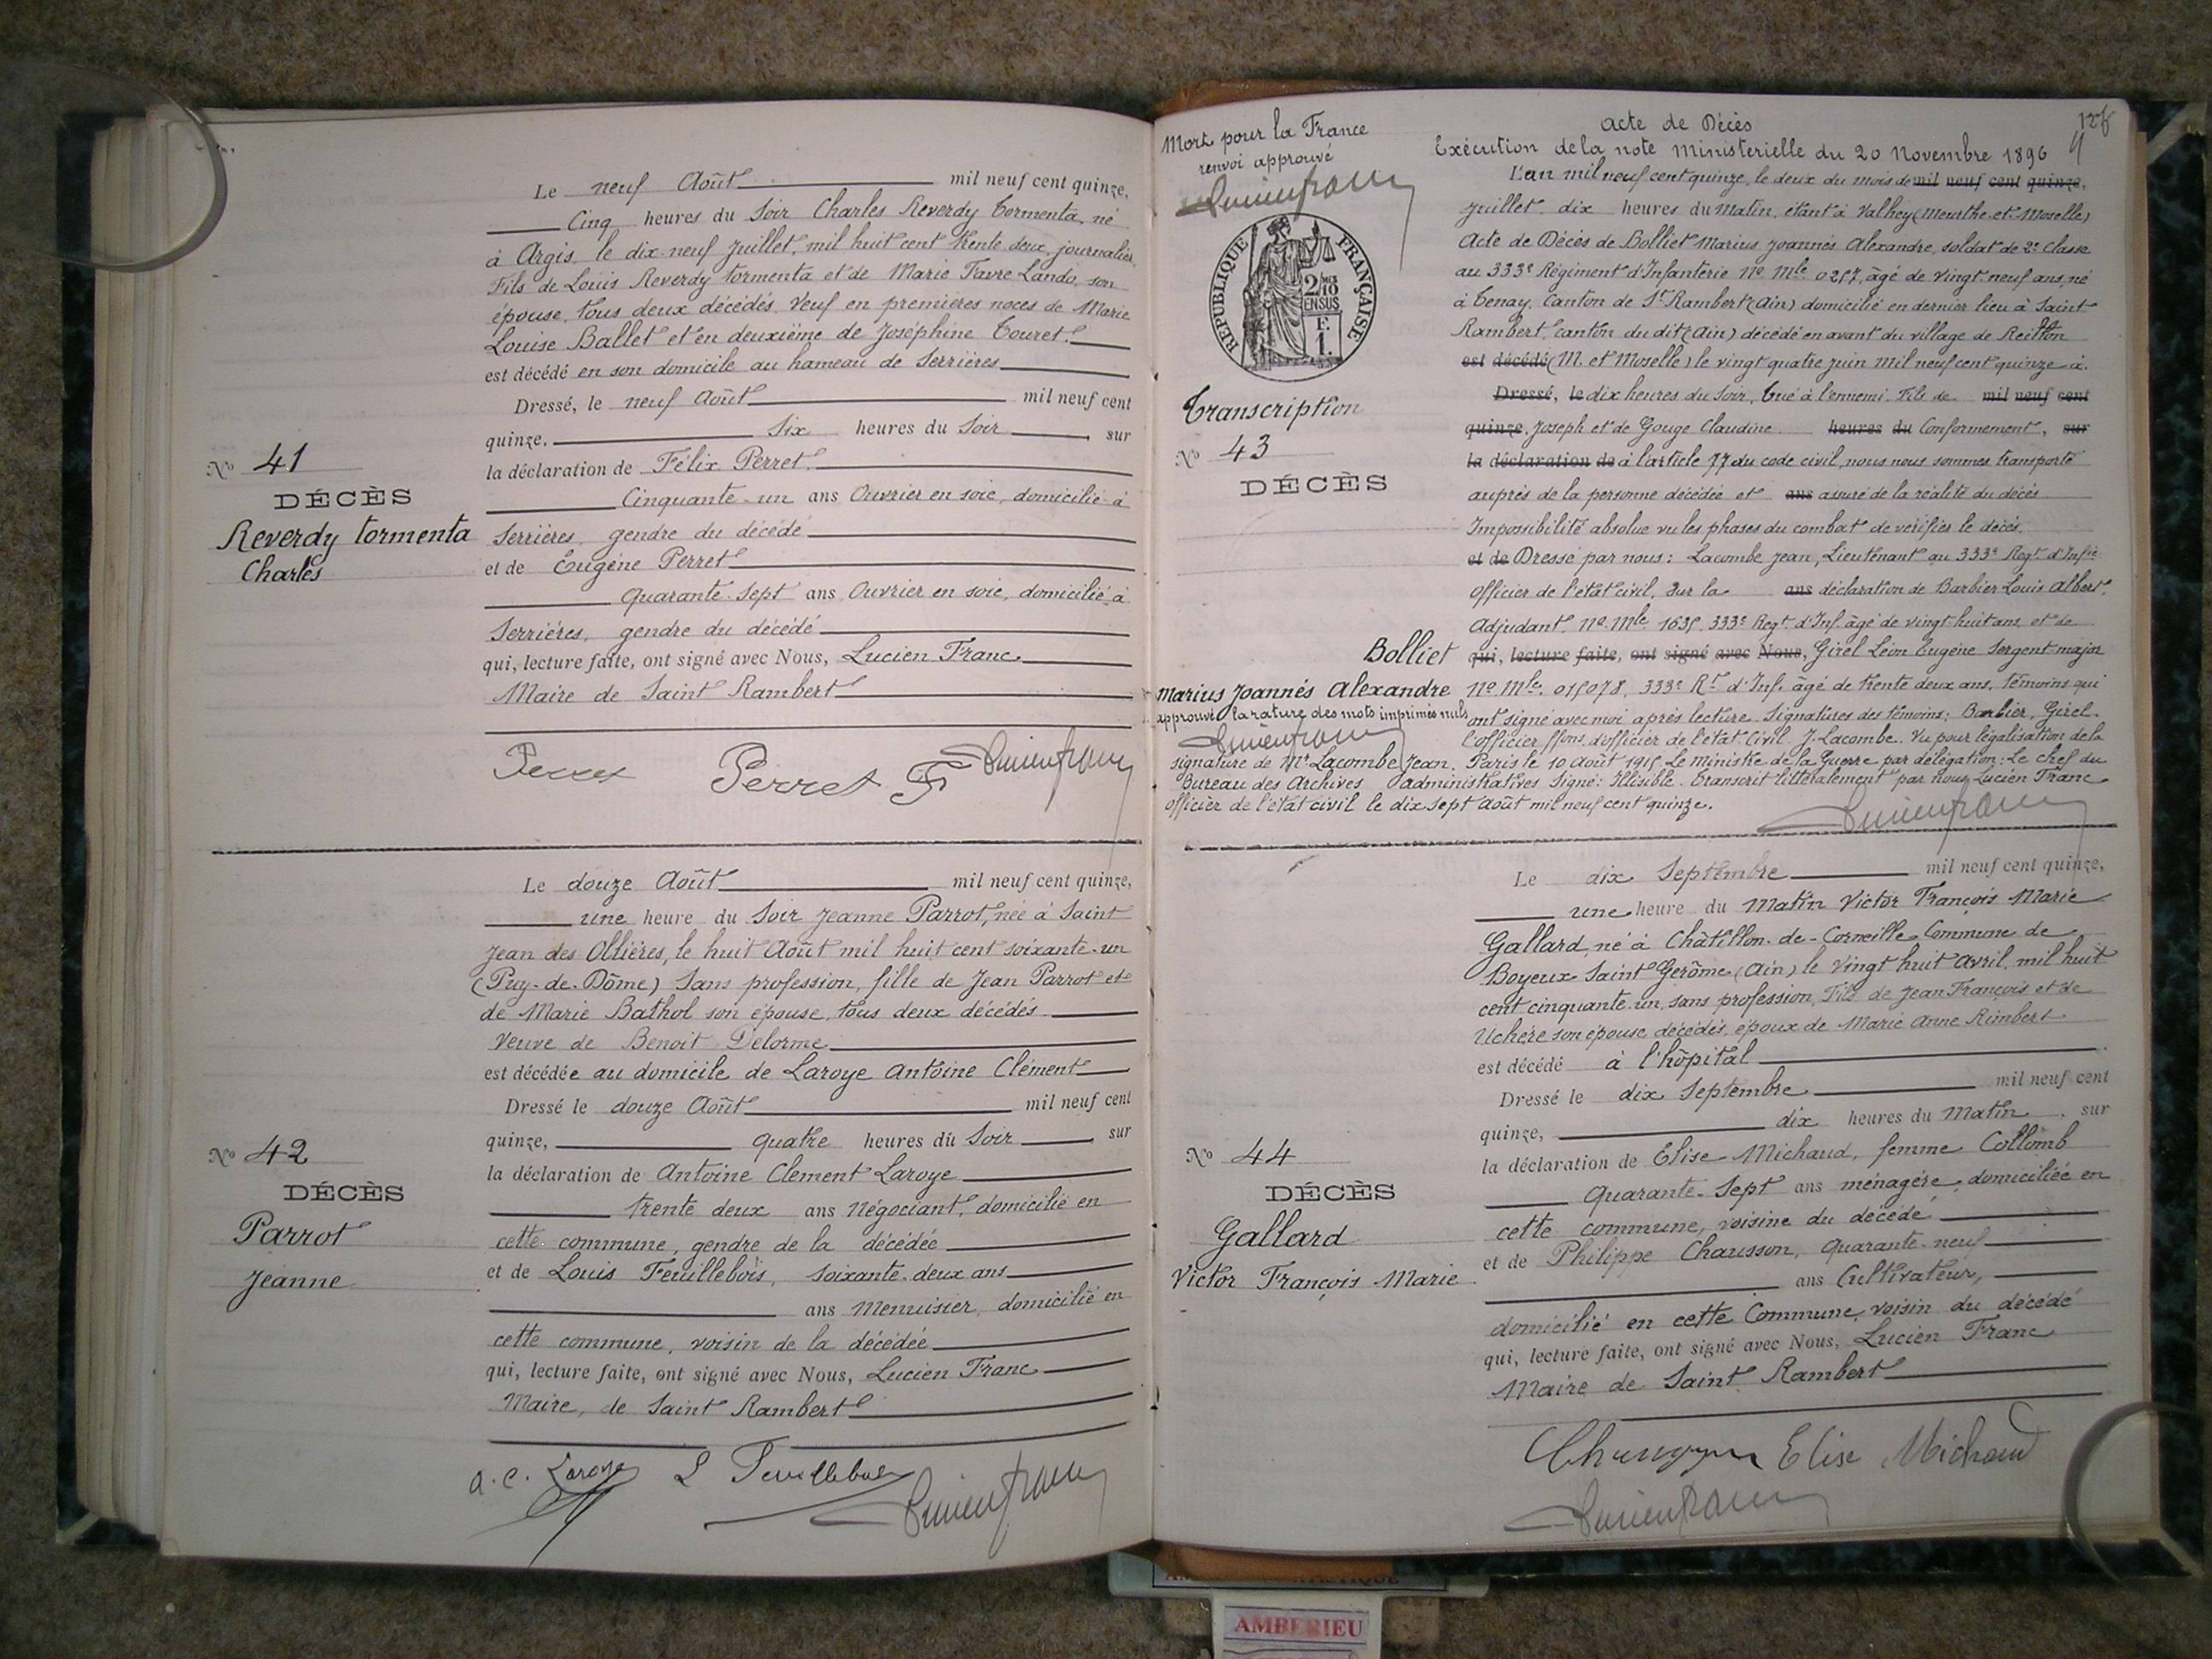 Le neuf Août mil neuf cent quinze,
Cinq heures du Soir Charles Reverdy tormenta, né
à Argis, le dix-neuf Juillet, mil huit cent trente deux, journalier,
Fils de Louis Reverdy tormenta et de Marie Favre Lando, son
épouse, tous deux décédés. Veuf en premières noces de Marie
Louise Ballet et en deuxième de Joséphine Touret.
est décédé en son domicile au hameau de Serrières
Dressé, le neuf Août mil neuf cent
quinze, Six heures du Soir, sur
la déclaration de Félix Perret
Cinquante-un ans Ouvrier en soie, domicilié à
Serrières, gendre du décédé
et de Eugène Perret
quarante-sept ans Ouvrier en soie, domicilié à
Serrières, gendre du décédé
qui, lecture faite, ont signé avec Nous, Lucien Franc
Maire de Saint Rambert
No 41
DÉCÈS
Reverdy tormenta
Charles
Perret Perret F Lucien Franc
Le douze Août mil neuf cent quinze,
une heure du Soir Jeanne Parrot, née à Saint
Jean des Ollières, le huit Août mil huit cent soixante-un
(Puy-de-Dôme) Sans profession, fille de Jean Parrot et
de Marie Bathol son épouse, tous deux décédés
Veuve de Benoit Delorme
est décédée au domicile de Laroye Antoine Clément
Dressé le douze Août mil neuf cent
quinze, quatre heures du Soir, sur
la déclaration de Antoine Clement Laroye
trente deux ans Négociant, domicilié en
cette commune, gendre de la décédée
et de Louis Feuillebois, soixante-deux ans
ans Menuisier, domicilié en
cette commune, voisin de la décédée
qui, lecture faite, ont signé avec Nous, Lucien Franc
Maire, de Saint Rambert
No 42
DÉCÈS
Parrot
Jeanne
a. c. Laroye L Feuillebois Lucien Franc
Mort pour la France
renvoi approuvé
Lucien Franc
RÉPUBLIQUE FRANÇAISE
2/10
EN SUS
Transcription
No 43
DÉCÈS
Bolliet
Marius Joannés Alexandre
approuvé la rature des mots imprimés nuls
Lucien Franc
Acte de Décès
Exécution de la note Ministerielle du 20 Novembre 1896
L'an mil neuf cent quinze, le deux du mois de mil neuf cent quinze,
Juillet dix heures du Matin, étant à Valhey (Meurthe-et-Moselle)
Acte de Décès de Bolliet Marius Joannés Alexandre, soldat de 2e Classe
au 333e Régiment d'Infanterie No Mle 0217, âgé de vingt-neuf ans, né
à Tenay, Canton de St Rambert (Ain) domicilié en dernier lieu à Saint
Rambert, canton du dit (Ain) décédé en avant du village de Reillon
est décédé (M. et Moselle) le vingt quatre Juin mil neuf cent quinze à
Dressé, le dix heures du Soir, Tué à l'ennemi. Fils de mil neuf cent
quinze, Joseph et de Gouge Claudine. heures du Conformement, sur
la déclaration de à l'article 77 du code civil, nous nous sommes transporté
auprès de la personne décédée et ans assuré de la réalité du décès
Impossibilité absolue vu les phases du combat de vérifier le décès.
et de Dressé par nous: Lacombe Jean, Lieutenant au 333e Regt d'Infie
Officier de l'état civil, Sur la ans déclaration de Barbier Louis Albert,
Adjudant, No Mle 1635, 333e Regt d'Inf. âgé de vingt huit ans, et de
qui, lecture faite, ont signé avec Nous, Girel Léon Eugène Sergent-major
No Mle 015078, 333e Rt d'Inf. âgé de trente deux ans, témoins qui
ont signé avec moi après lecture. Signatures des témoins: Barbier, Girel.
l'officier ffons d'officier de l'état Civil J. Lacombe. Vu pour légalisation de la
signature de Mr Lacombe Jean. Paris le 10 Août 1915 Le ministre de la Guerre par délégation: Le chef du
Bureau des Archives administratives Signé: Illisible. Transcrit littéralement par nous, Lucien Franc
officier de l'état civil le dix sept Août mil neuf cent quinze.
Lucien Franc
Le dix Septembre mil neuf cent quinze,
une heure du Matin Victor François Marie
Gallard, né à Châtillon-de-Corneille Commune de
Boyeux Saint Gerôme (Ain) le Vingt huit Avril, mil huit
cent cinquante-un, sans profession, Fils de Jean François et de
Uchère son épouse, décédés, époux de Marie Anne Rimbert
est décédé à l'hôpital
Dressé le dix Septembre mil neuf cent
quinze, dix heures du Matin, sur
la déclaration de Elise Michaud, femme Collomb
Quarante-Sept ans ménagère, domiciliée en
cette commune, voisine du décédé
et de Philippe Chausson, Quarante-neuf
ans Cultivateur,
domicilié en cette Commune, voisin du décédé
qui, lecture faite, ont signé avec Nous, Lucien Franc
Maire de Saint Rambert
No 44
DÉCÈS
Gallard
Victor François Marie
Chausson Elise Michaud
Lucien Franc
AMBERIEU